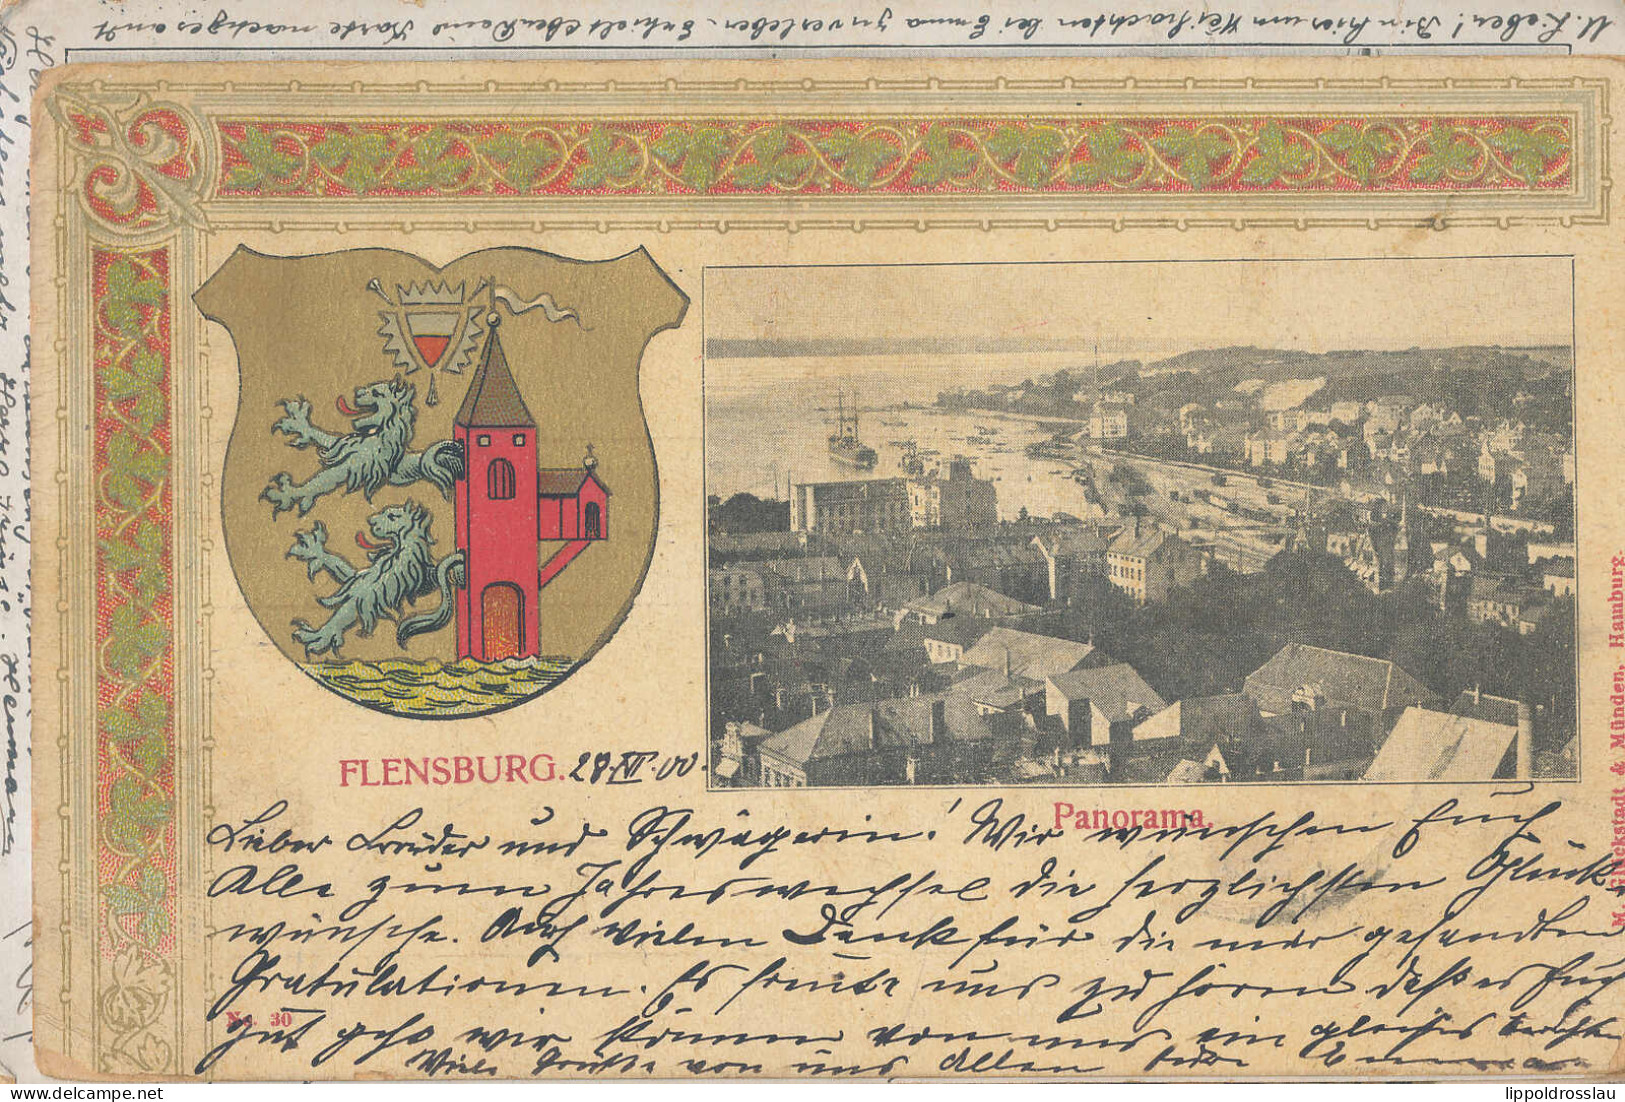 M. Lieber! Bin hier um Weihnachten bei Emma zu verleben. Erhielt eben Deine Karte nachgesandt
FLENSBURG. 28.XII.00.
Panorama.
Lieber Bruder und Schwägerin! Wir wünschen Euch
Alle zum Jahreswechsel die herzlichsten Glück-
wünsche. Auch vielen Dank für die mir gesandten
Gratulationen. Es freute uns zu hören daß es Euch
gut geht wir können von uns ein gleiches berichten
Viele Grüße von uns Allen Eure Emma
No. 30
M. Glückstadt & Münden, Hamburg.
Hermann
lippoldrosslau